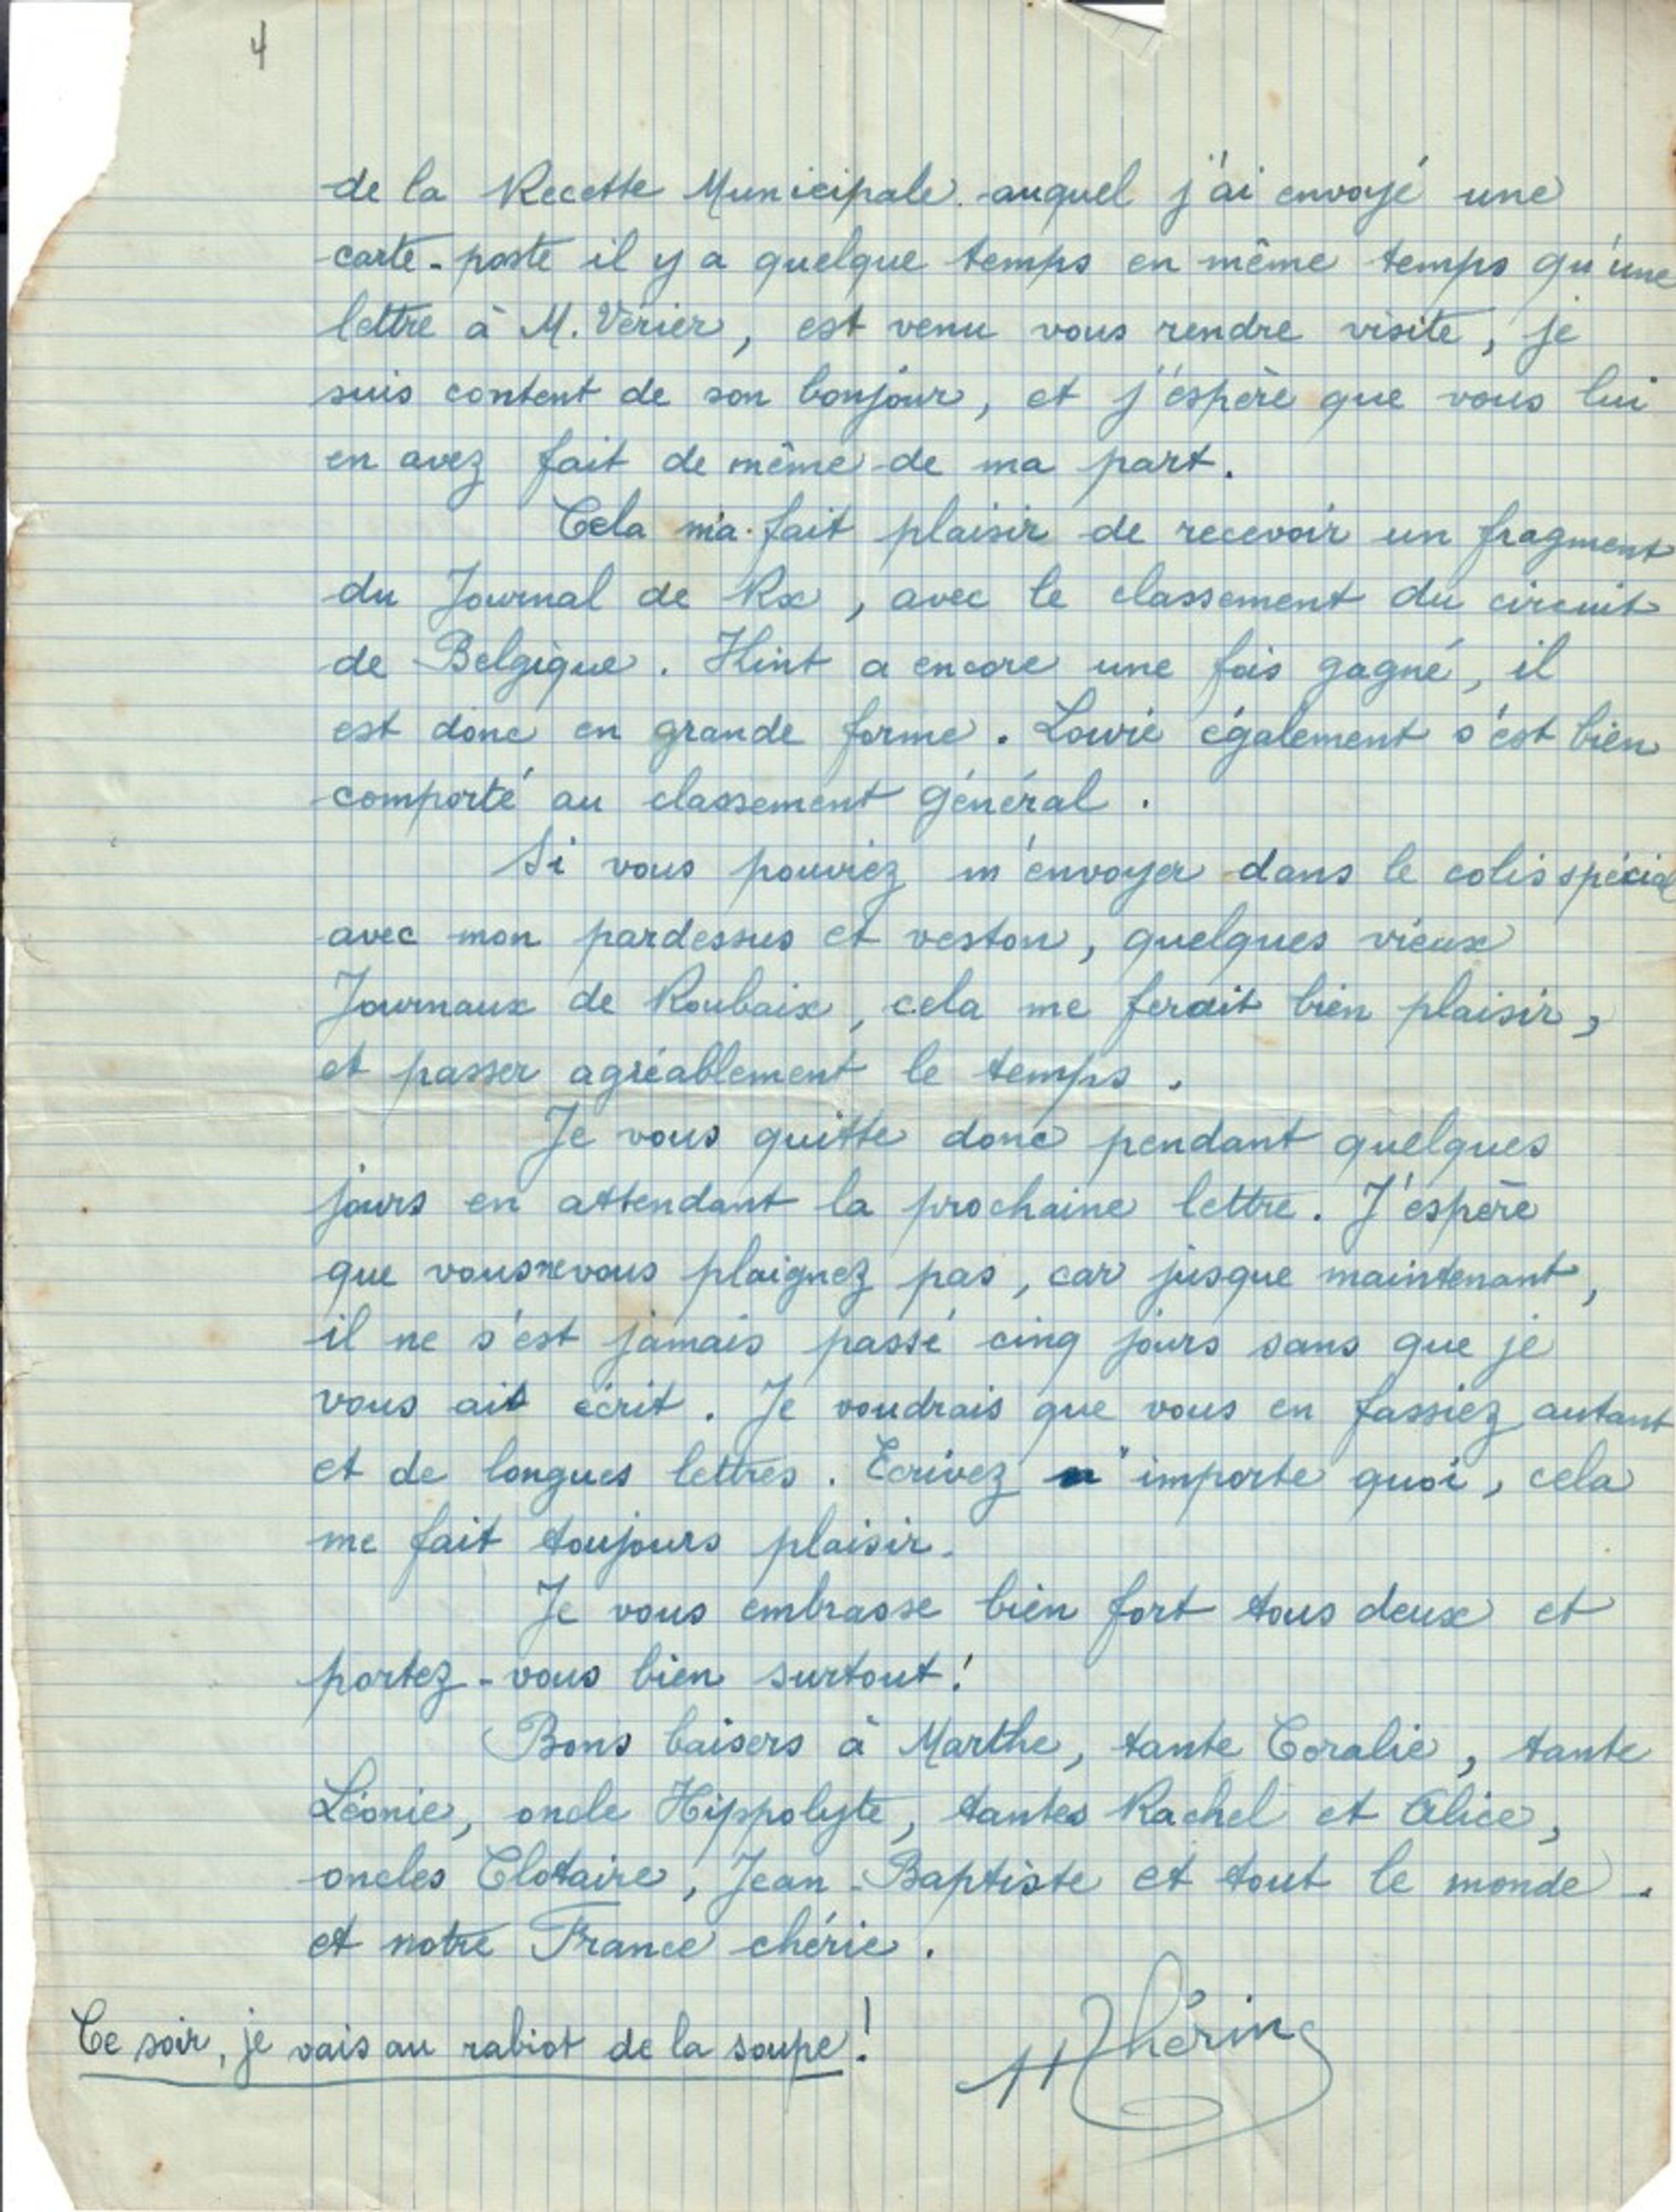 4
de la Recette Municipale auquel j'ai envoyé une
carte-poste il y a quelque temps en même temps qu'une
lettre à M. Vérier, est venu vous rendre visite, je
suis content de son bonjour, et j'espère que vous lui
en avez fait de même de ma part.
Cela m'a fait plaisir de recevoir un fragment
du Journal de Rx, avec le classement du circuit
de Belgique. Hint a encore une fois gagné, il
est donc en grande forme. Lowie également s'est bien
comporté au classement général.
Si vous pouviez m'envoyer dans le colis spécial
avec mon pardessus et veston, quelques vieux
Journaux de Roubaix, cela me ferait bien plaisir,
et passer agréablement le temps.
Je vous quitte donc pendant quelques
jours en attendant la prochaine lettre. J'espère
que vous ne vous plaignez pas, car jusque maintenant,
il ne s'est jamais passé cinq jours sans que je
vous ait écrit. Je voudrais que vous en fassiez autant
et de longues lettres. Ecrivez n'importe quoi, cela
me fait toujours plaisir.
Je vous embrasse bien fort tous deux et
portez-vous bien surtout!
Bons baisers à Marthe, tante Coralie, tante
Léonie, oncle Hippolyte, tantes Rachel et Alice,
oncles Clotaire, Jean-Baptiste et tout le monde.
et notre France chérie.
Ce soir, je vais au rabiot de la soupe!